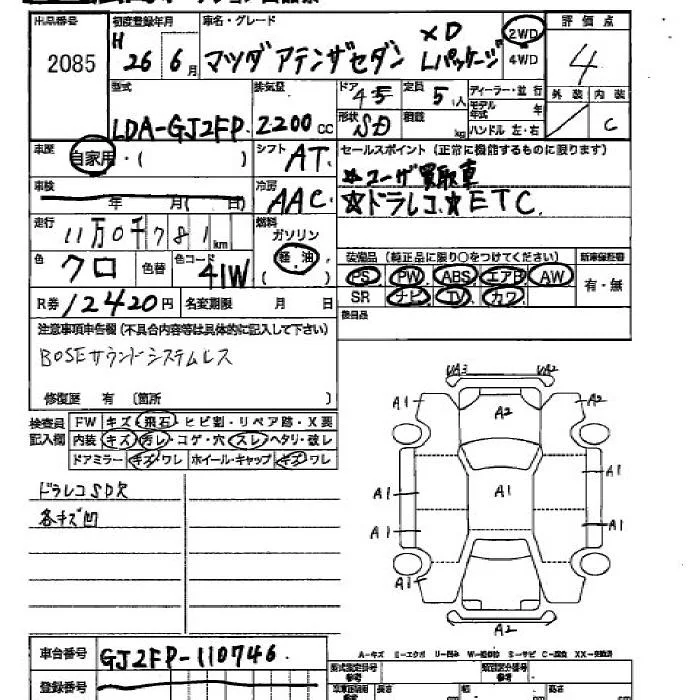 出品番号 初度登録年月 車名・グレード 評価点
2085 H 26 6月 マツダ アテンザセダン XD Lパッケージ 2WD 4WD 4
型式 排気量 ドア 4 定員 5人 ディーラー・並行 外装 内装
LDA-GJ2FP 2200cc 形状 SD 積載 kg モデル年式 年 ハンドル 左・右 C
車歴 自家用・( ) シフト AT セールスポイント (正常に機能するものに限ります)
☆ユーザ買取車
車検 年 月( 日) 冷房 AAC ☆ドラレコ ☆ETC
走行 11万0千781km 燃料 ガソリン 軽油 ( )
装備品 (純正品に限り○をつけてください) 新車保証書
色 クロ 色替 色コード 41W PS PW ABS エアB AW 有・無
SR ナビ TV カワ
R券 12420円 名変期限 月 日
後日品
注意事項申告欄 (不具合内容等は具体的に記入して下さい)
BOSEサウンドシステムレス
修復歴 有 〔箇所 〕
検査員記入欄 FW キズ・飛石・ヒビ割・リペア跡・X要
内装 キズ 汚レ・コゲ・穴 スレ・ヘタリ・破レ
ドアミラー キズ・ワレ ホイール・キャップ キズ・ワレ
ドラレコSD欠
各キズ凹
UA3 UA2
A1 A2 A1
A1
A1 A1
A1 A1
A1
A2
車台番号 GJ2FP-110746
A-キズ E-エクボ U-凹み W-補修跡 S-サビ C-腐食 XX-交換済
登録番号 型式指定番号 参考 類別区分番号 参考
長さ 幅 高さ